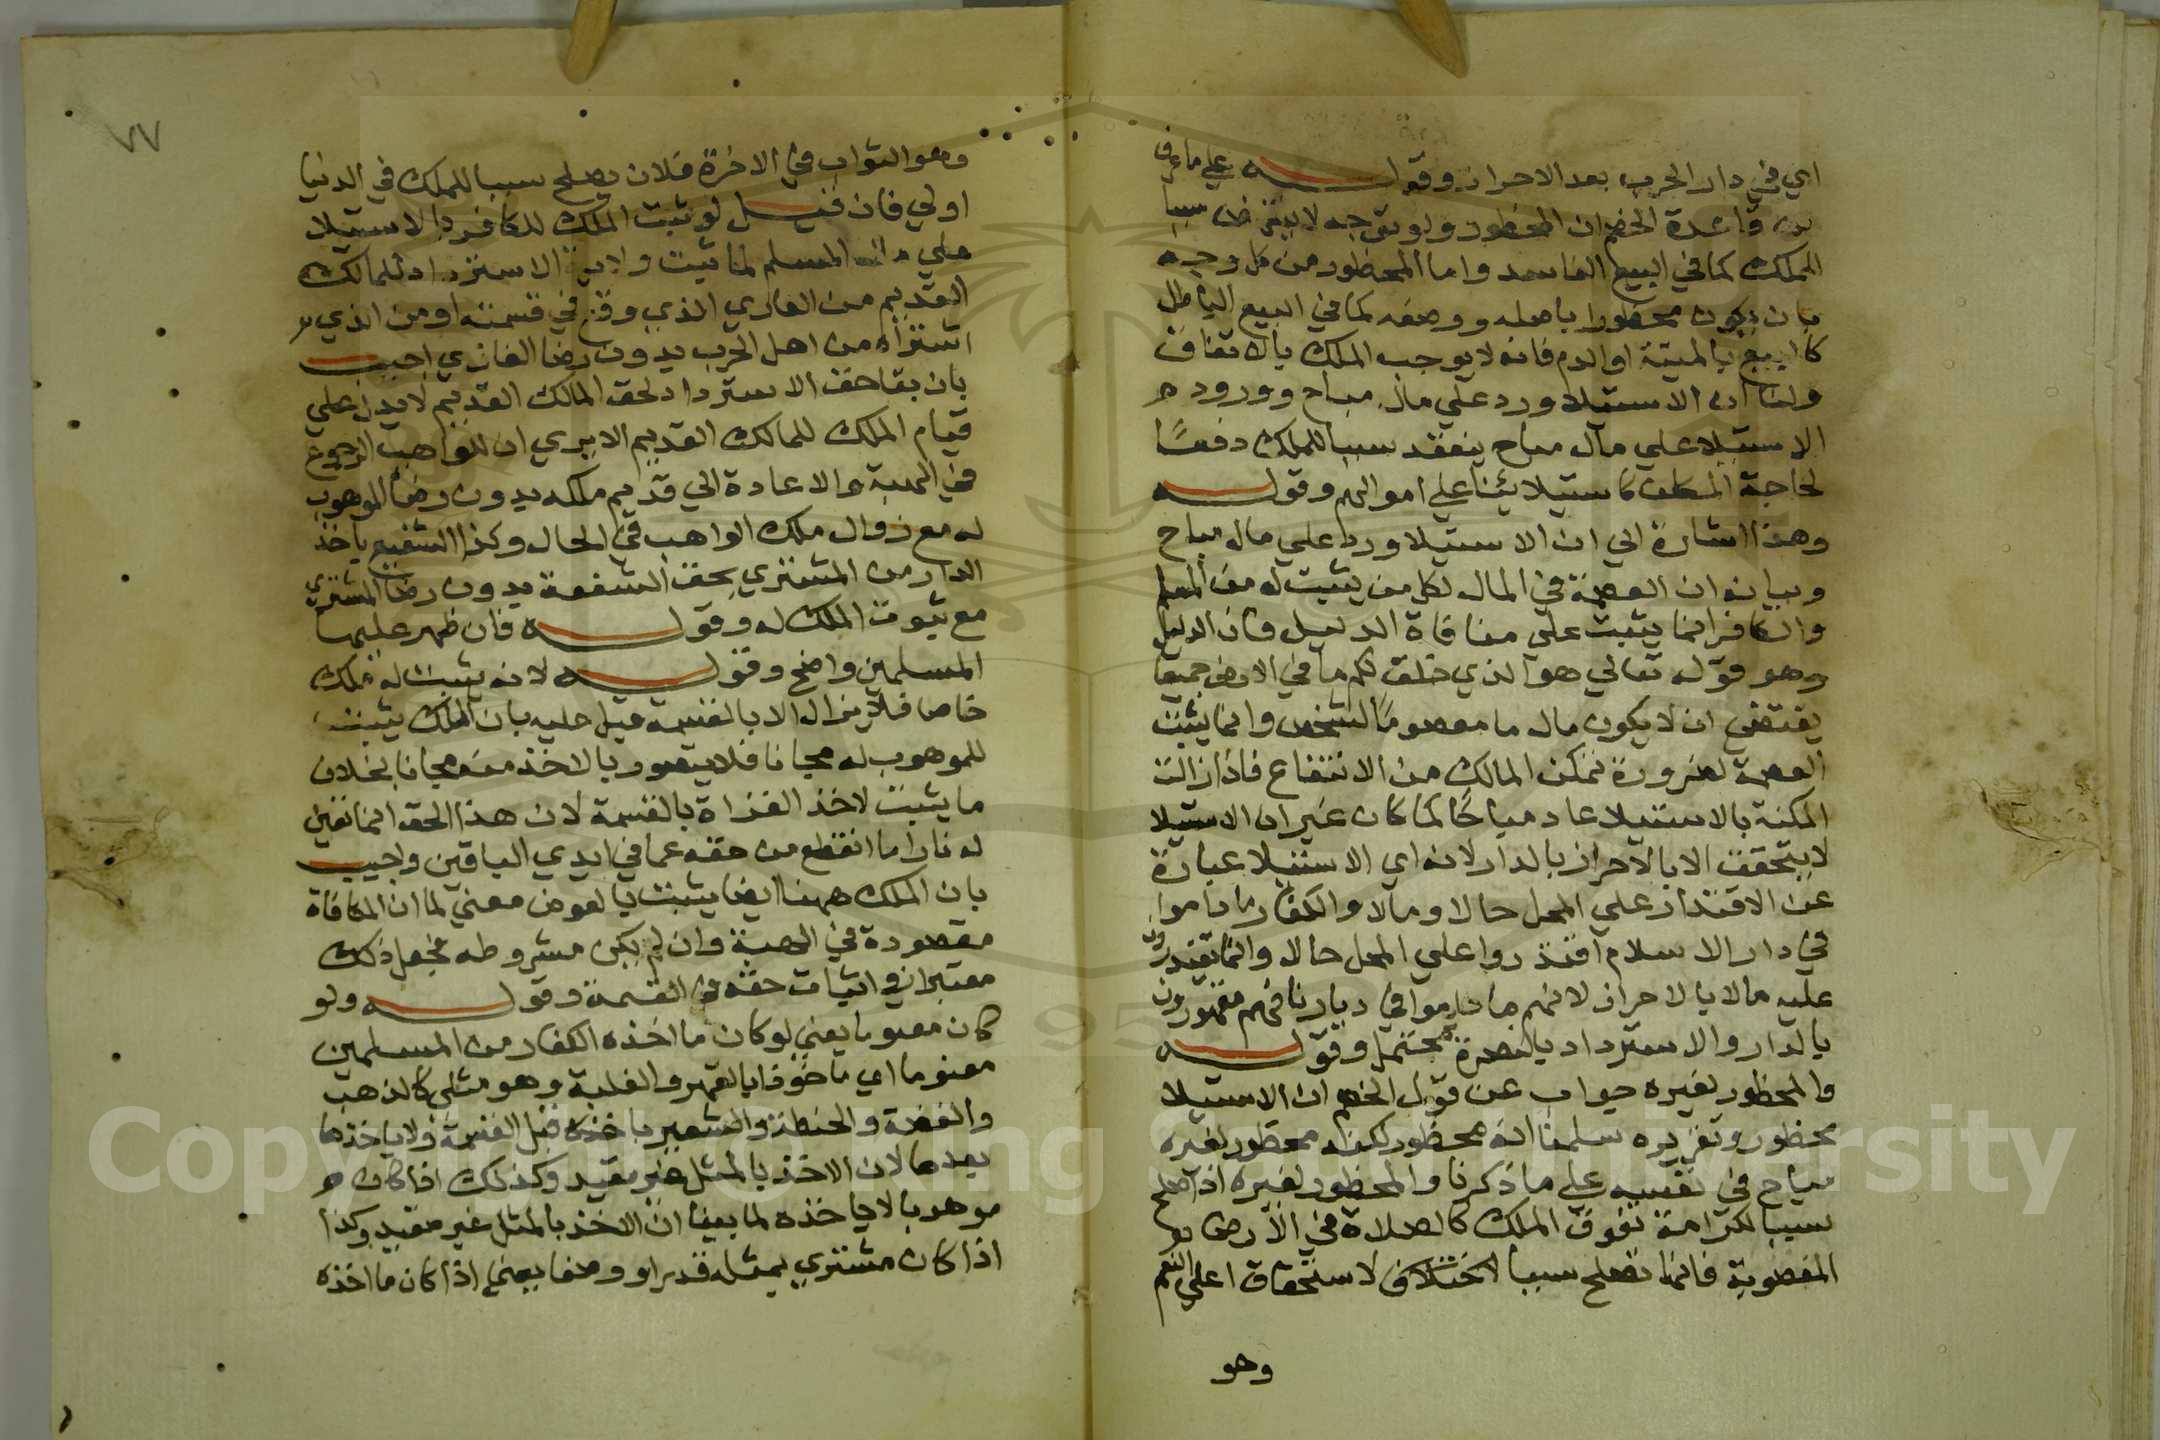 اي في دار الحرب بعد الاحراز وقوله على ما عرف
من قاعدة الخصم ان المحظور ولو بوجه لا ينتهض سببا
للملك كما في البيع الفاسد واما المحظور من كل وجه
بان يكون محظورا باصله ووصفه كما في البيع الباطل
كالبيع بالميتة او الدم فانه لا يوجب الملك بالاتفاق
ولنا ان الاستيلا ورد على مال مباح وورود
الاستيلا على مال مباح ينعقد سببا للملك دفعا
لحاجة المكلف كاستيلائنا على اموالهم وقوله
وهذا اشارة الى ان الاستيلا ورد على مال مباح
وبيانه ان العصمة في المال لكل من يثبت له من المسلم
والكافر انما يثبت على منافاة الدليل فان الدليل
وهو قوله تعالى هو الذي خلق لكم ما في الارض جميعا
يقتضي ان لا يكون مال ما معصوما لشخص وانما يثبت
العصمة لضرورة تمكن المالك من الانتفاع فاذا زالت
المكنة بالاستيلا عاد مباحا كما كان غير ان الاستيلا
لا يتحقق الا بالاحراز بالدار لانه اي الاستيلا عبارة
عن الاقتدار على المحل حالا ومالا والكفار ما داموا
في دار الاسلام اقتدروا على المحل حالا وانما يقتدرون
عليه مالا بالاحراز لانهم ما داموا في ديارنا فهم مقهورون
بالدار والاسترداد بالنصرة محتمل وقوله
والمحظور لغيره جواب عن قول الخصم ان الاستيلا
محظور وتقريره سلمنا انه محظور لكنه محظور لغيره
مباح في نفسه على ما ذكرنا والمحظور لغيره اذا صلح
سببا لكرامة تفوق الملك كالصلاة في الارض
المغصوبة فانها تصلح سببا لاستحقاق اعلى النعم
وهو
٧٧
وهو الثواب في الاخرة فلان يصلح سببا للملك في الدنيا
اولى فان قيل لو ثبت الملك للكافر بالاستيلا
على مال المسلم لما ثبت ولاية الاسترداد للمالك
القديم من الغازي الذي وقع في قسمته او من الذي
اشتراه من اهل الحرب بدون رضا الغازي اجيب
بان بقا حق الاسترداد لحق المالك القديم لا يدل على
قيام الملك للمالك القديم الا يرى ان للواهب الرجوع
في الهبة والاعادة الى قديم ملكه بدون رضا الموهوب
له مع زوال ملك الواهب في الحال وكذا الشفيع ياخذ
الدار من المشتري بحق الشفعة بدون رضا المشتري
مع ثبوت الملك له وقوله فان ظهر عليها
المسلمين واضح وقوله لانه يثبت له ملك
خاصا فلا يزال الا بالقسمة قيل عليه بان الملك يثبت
للموهوب له مجانا فلا يتصور بالاخذ منه مجانا بخلاف
ما يثبت لاخذ الغزاة بالقسمة لان هذا الحق انما تعين
له بازا ما انقطع من حقه عما في ايدي الباقين واجيب
بان الملك ههنا ايضا يثبت بالعوض معنى لما ان المكافاة
مقصودة في الهبة وان لم يكن مشروطه فجعل ذلك
معتبرا في اثبات حقه في القسمة وقوله ولو
كان مغنوما يعني لو كان ما اخذه الكفار من المسلمين
مغنوما اي ماخوذا بالقهر والغلبة وهو مثلي كالذهب
والفضة والحنطة والشعير ياخذه قبل القسمة ولا ياخذها
بعدها لان الاخذ بالمثل غير مفيد وكذلك اذا كان
موهوبا لا ياخذه لما بينا ان الاخذ بالمثل غير مفيد وكذا
اذا كان مشتري بمثله قدرا ووصفا يعني اذا كان ما اخذه
Copyright © King Saud University